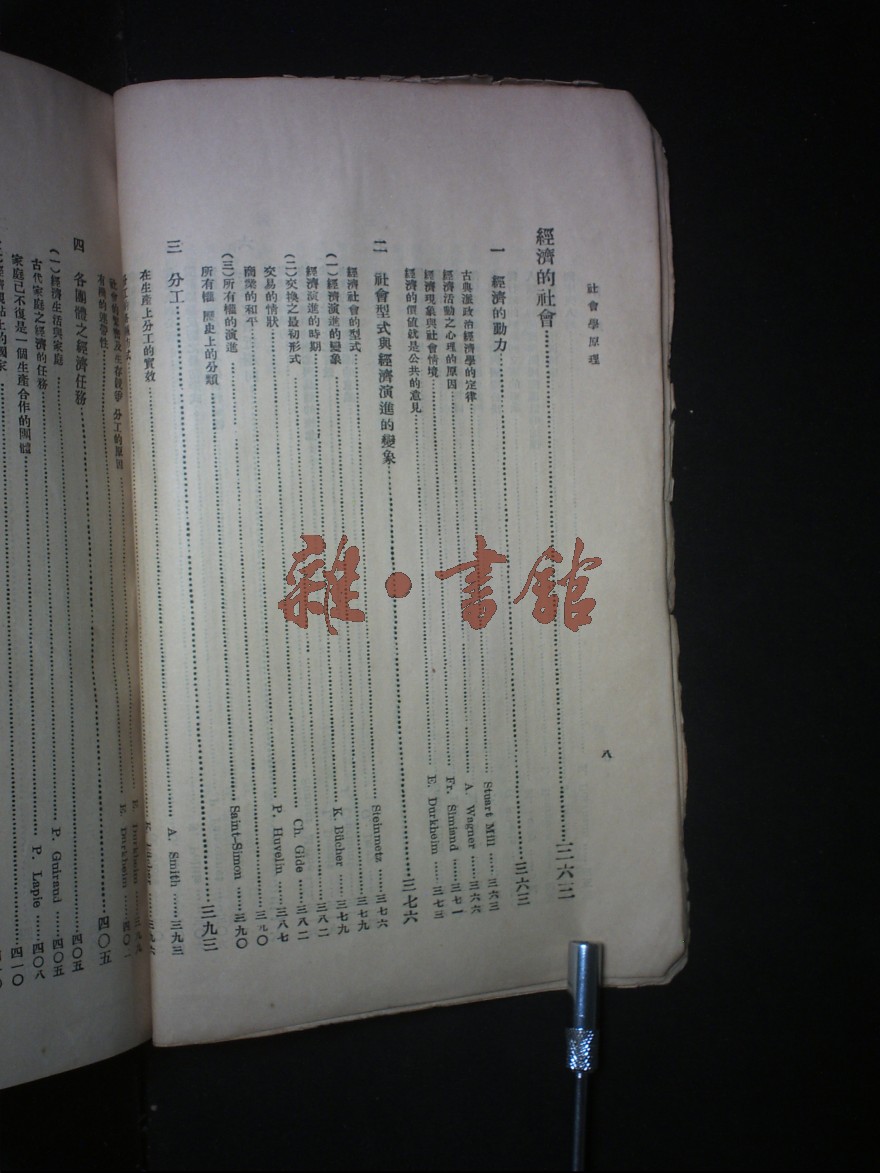 社會學原理
八
經濟的社會……三六三
一 經濟的動力……三六三
古典派政治經濟學的定律……Stuart Mill……三六三
經濟活動之心理的原因……A. Wagner……三六六
經濟現象與社會情境……Fr. Simiand……三七一
經濟的價值就是公共的意見……E. Durkheim……三七三
二 社會型式與經濟演進的變象……三七六
經濟社會的型式……Steinmetz……三七六
(一)經濟演進的變象……三七九
經濟演進的時期……K. Bücher……三七九
(二)交換之最初形式……Ch. Gide……三八二
交易的情狀……三八二
商業的和平……P. Huvelin……三八七
(三)所有權的演進……三九〇
所有權 歷史上的分類……Saint-Simon……三九〇
三 分工……三九三
在生產上分工的實效……A. Smith……三九三
K. Bücher
E. Durkheim
有機的連帶性……E. Durkheim……四〇二
四 各團體之經濟任務……四〇五
(一)經濟生活與家庭……四〇五
古代家庭之經濟的任務……P. Guiraud……四〇五
家庭已不復是一個生產合作的團體……P. Lapie……四〇八
四一〇
雜·書館